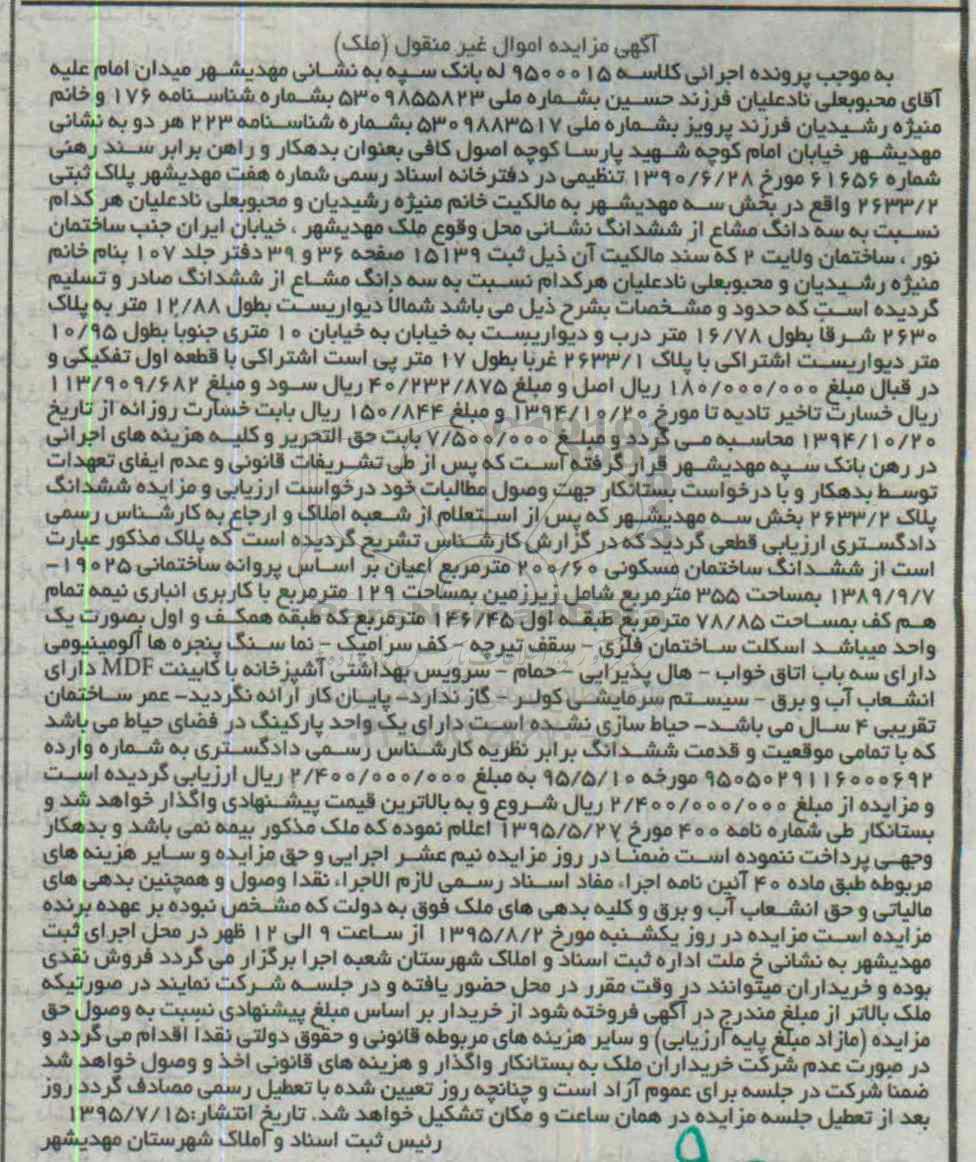 آگهی مزایده اموال غیر منقول (ملک)
به موجب پرونده اجرائی کلاسه ۹۵۰۰۰۱۵ له بانک سپه به نشانی مهدیشهر میدان امام علیه
آقای محبوبعلی نادعلیان فرزند حسین بشماره ملی ۵۳۰۹۸۵۵۸۲۳ بشماره شناسنامه ۱۷۶ و خانم
منیژه رشیدیان فرزند پرویز بشماره ملی ۵۳۰۹۸۸۳۵۱۷ بشماره شناسنامه ۲۲۳ هر دو به نشانی
مهدیشهر خیابان امام کوچه شهید پارسا کوچه اصول کافی بعنوان بدهکار و راهن برابر سند رهنی
شماره ۶۱۶۵۶ مورخ ۱۳۹۰/۶/۲۸ تنظیمی در دفترخانه اسناد رسمی شماره هفت مهدیشهر پلاک ثبتی
۲۶۳۳/۲ واقع در بخش سه مهدیشهر به مالکیت خانم منیژه رشیدیان و محبوبعلی نادعلیان هر کدام
نسبت به سه دانگ مشاع از ششدانگ نشانی محل وقوع ملک مهدیشهر ، خیابان ایران جنب ساختمان
نور ، ساختمان ولایت ۲ که سند مالکیت آن ذیل ثبت ۱۵۱۳۹ صفحه ۳۶ و ۳۹ دفتر جلد ۱۰۷ بنام خانم
منیژه رشیدیان و محبوبعلی نادعلیان هرکدام نسبت به سه دانگ مشاع از ششدانگ صادر و تسلیم
گردیده است که حدود و مشخصات بشرح ذیل می باشد شمالا دیواریست بطول ۱۲/۸۸ متر به پلاک
۲۶۳۰ شرقا بطول ۱۶/۷۸ متر درب و دیواریست به خیابان به خیابان ۱۰ متری جنوبا بطول ۱۰/۹۵
متر دیواریست اشتراکی با پلاک ۲۶۳۳/۱ غربا بطول ۱۷ متر پی است اشتراکی با قطعه اول تفکیکی و
در قبال مبلغ ۱۸۰/۰۰۰/۰۰۰ ریال اصل و مبلغ ۴۰/۲۳۲/۸۷۵ ریال سود و مبلغ ۱۱۳/۹۰۹/۶۸۲
ریال خسارت تاخیر تادیه تا مورخ ۱۳۹۴/۱۰/۲۰ و مبلغ ۱۵۰/۸۴۴ ریال بابت خسارت روزانه از تاریخ
۱۳۹۴/۱۰/۲۰ محاسبه می گردد و مبلغ ۷/۵۰۰/۰۰۰ بابت حق التحریر و کلیه هزینه های اجرائی
در رهن بانک سپه مهدیشهر قرار گرفته است که پس از طی تشریفات قانونی و عدم ایفای تعهدات
توسط بدهکار و با درخواست بستانکار جهت وصول مطالبات خود درخواست ارزیابی و مزایده ششدانگ
پلاک ۲۶۳۳/۲ بخش سه مهدیشهر که پس از استعلام از شعبه املاک و ارجاع به کارشناس رسمی
دادگستری ارزیابی قطعی گردید که در گزارش کارشناس تشریح گردیده است که پلاک مذکور عبارت
است از ششدانگ ساختمان مسکونی ۲۰۰/۶۰ مترمربع اعیان بر اساس پروانه ساختمانی ۱۹۰۲۵-
۱۳۸۹/۹/۷ بمساحت ۳۵۵ مترمربع شامل زیرزمین بمساحت ۱۲۹ مترمربع با کاربری انباری نیمه تمام
هم کف بمساحت ۷۸/۸۵ مترمربع طبقه اول ۱۴۶/۴۵ مترمربع که طبقه همکف و اول بصورت یک
واحد میباشد اسکلت ساختمان فلزی – سقف تیرچه – کف سرامیک – نما سنگ پنجره ها آلومینیومی
دارای سه باب اتاق خواب – هال پذیرایی – حمام – سرویس بهداشتی آشپزخانه با کابینت MDF دارای
انشعاب آب و برق – سیستم سرمایشی کولر – گاز ندارد– پایان کار ارائه نگردید– عمر ساختمان
تقریبی ۴ سال می باشد– حیاط سازی نشده است دارای یک واحد پارکینگ در فضای حیاط می باشد
که با تمامی موقعیت و قدمت ششدانگ برابر نظریه کارشناس رسمی دادگستری به شماره وارده
۹۵۰۵۰۲۹۱۱۶۰۰۰۶۹۲ مورخه ۹۵/۵/۱۰ به مبلغ ۲/۴۰۰/۰۰۰/۰۰۰ ریال ارزیابی گردیده است
و مزایده از مبلغ ۲/۴۰۰/۰۰۰/۰۰۰ ریال شروع و به بالاترین قیمت پیشنهادی واگذار خواهد شد و
بستانکار طی شماره نامه ۴۰۰ مورخ ۱۳۹۵/۵/۲۷ اعلام نموده که ملک مذکور بیمه نمی باشد و بدهکار
وجهی پرداخت ننموده است ضمنا در روز مزایده نیم عشر اجرایی و حق مزایده و سایر هزینه های
مربوطه طبق ماده ۴۰ آئین نامه اجراء مفاد اسناد رسمی لازم الاجراء نقدا وصول و همچنین بدهی های
مالیاتی و حق انشعاب آب و برق و کلیه بدهی های ملک فوق به دولت که مشخص نبوده بر عهده برنده
مزایده است مزایده در روز یکشنبه مورخ ۱۳۹۵/۸/۲ از ساعت ۹ الی ۱۲ ظهر در محل اجرای ثبت
مهدیشهر به نشانی خ ملت اداره ثبت اسناد و املاک شهرستان شعبه اجرا برگزار می گردد فروش نقدی
بوده و خریداران میتوانند در وقت مقرر در محل حضور یافته و در جلسه شرکت نمایند در صورتیکه
ملک بالاتر از مبلغ مندرج در آگهی فروخته شود از خریدار بر اساس مبلغ پیشنهادی نسبت به وصول حق
مزایده (مازاد مبلغ پایه ارزیابی) و سایر هزینه های مربوطه قانونی و حقوق دولتی نقدا اقدام می گردد و
در صورت عدم شرکت خریداران ملک به بستانکار واگذار و هزینه های قانونی اخذ و وصول خواهد شد
ضمنا شرکت در جلسه برای عموم آزاد است و چنانچه روز تعیین شده با تعطیل رسمی مصادف گردد روز
بعد از تعطیل جلسه مزایده در همان ساعت و مکان تشکیل خواهد شد. تاریخ انتشار:۱۳۹۵/۷/۱۵
رئیس ثبت اسناد و املاک شهرستان مهدیشهر